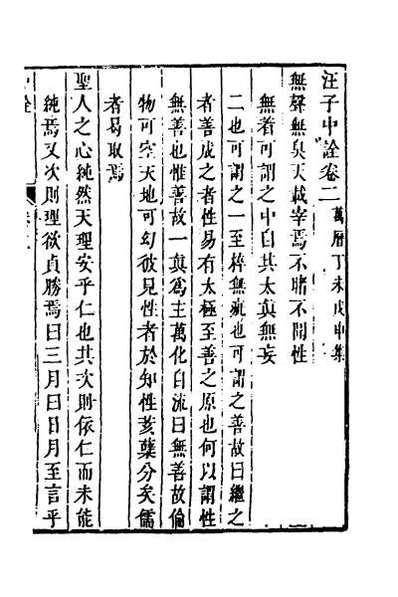 汪子中詮卷二 萬曆丁未戊申集
無聲無臭天載宰焉不睹不聞性
無着可謂之中自其太真無妄
二也可謂之一至粹無疵也可謂之善故曰繼之
者善成之者性易有太極至善之原也何以謂性
無善也惟善故一真為主萬化自流曰無善故倫
物可空天地可幻彼見性者於知性亥蘖分矣儒
者曷取焉
聖人之心純然天理安乎仁也其次則依仁而未能
純焉又次則理欲貞勝焉曰三月曰日月至言乎